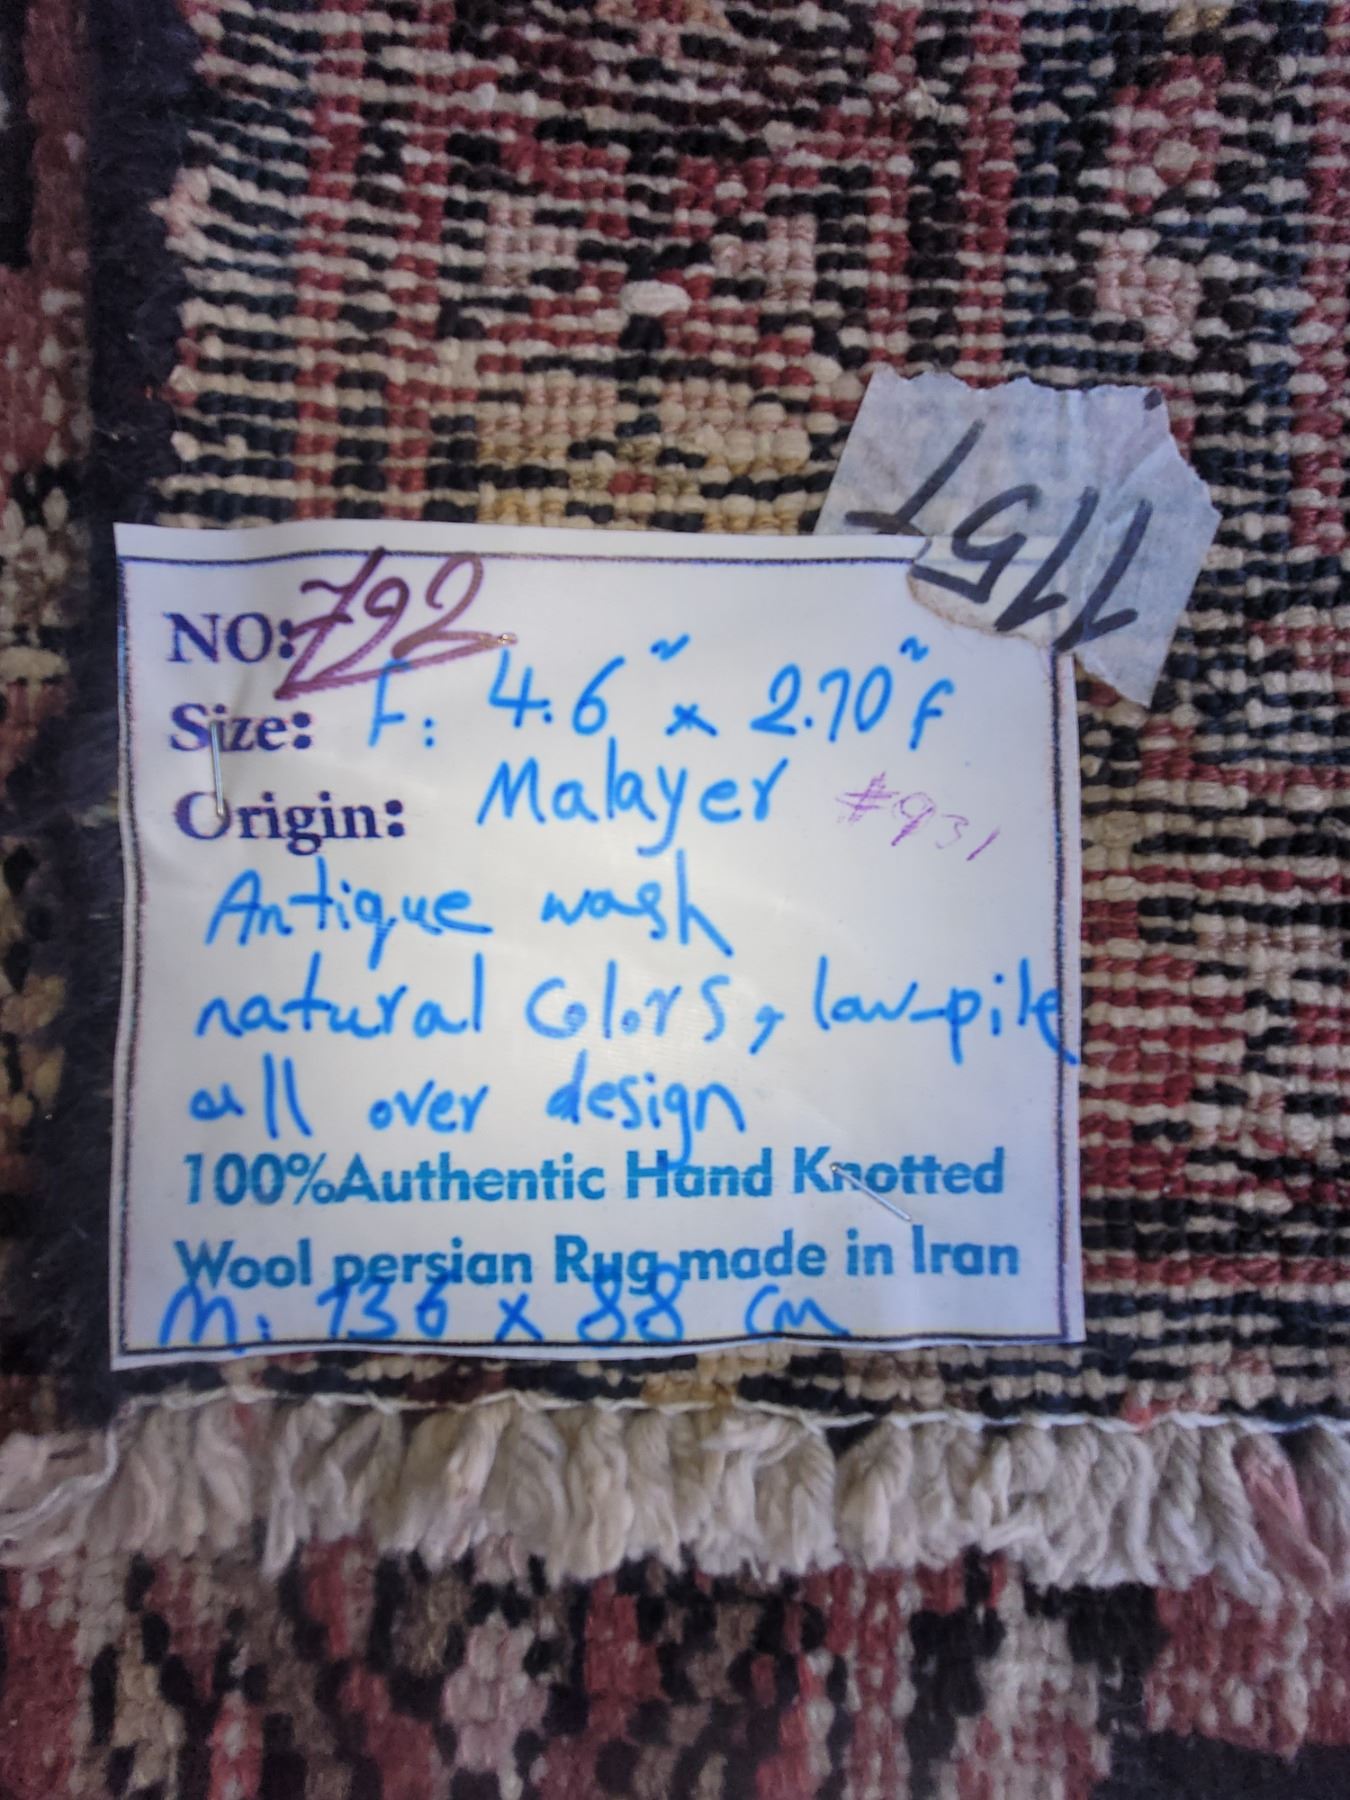 1157
NO: 792
Size: F: 4.6" x 2.10" F
Origin: Malayer #931
Antique wash
natural colors, low-pile
all over design
100%Authentic Hand Knotted
Wool persian Rug made in Iran
M: 136 x 88 cm